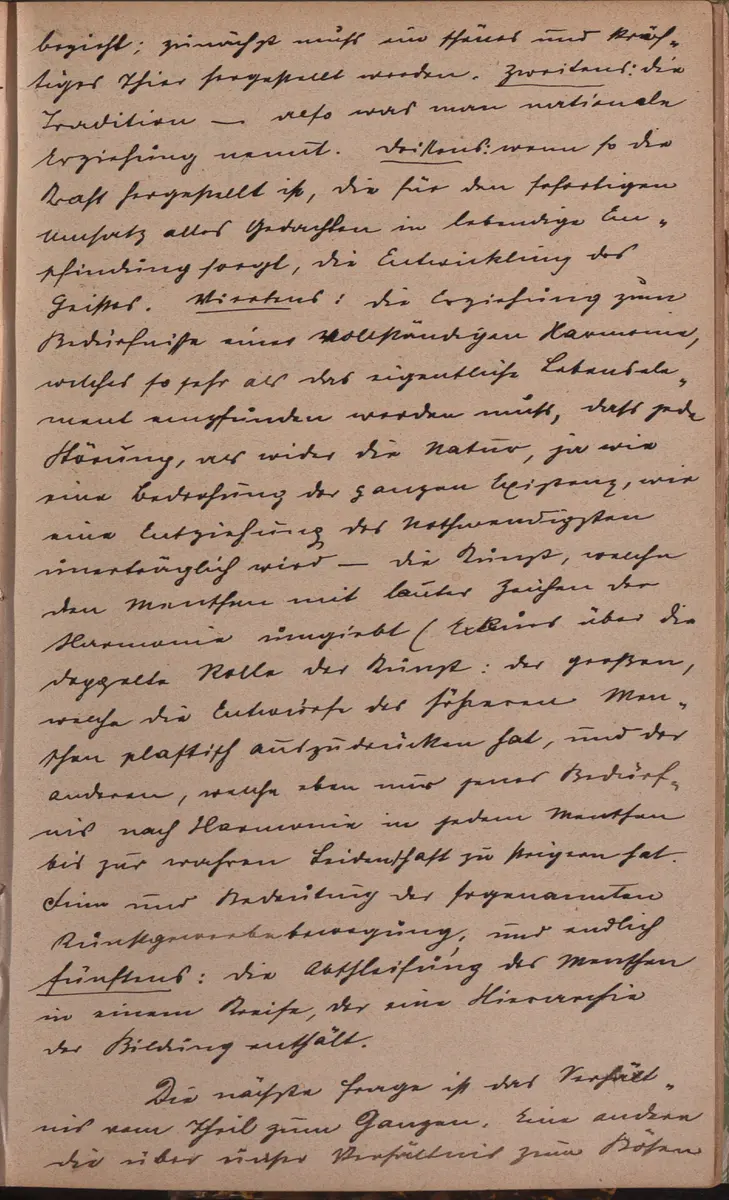 bezieht; zunächst muß ein schönes und kräf-
tiges Thier hergestellt werden. Zweitens: die
Tradition — also was man nationale
Erziehung nennt. Drittens: wenn so die
Kraft hergestellt ist, die für den sofortigen
Umsatz alles Gedachten in lebendige Em-
pfindung sorgt, die Entwicklung des
Geistes. Viertens: die Erziehung zum
Bedürfnisse einer vollständigen Harmonie,
welches so sehr als das eigentliche Lebensele-
ment empfunden werden muß, daß jede
Störung, als wider die Natur, ja wie
eine Bedrohung der ganzen Existenz, wie
eine Entziehung des Nothwendigsten
unerträglich wird — die Kunst, welche
den Menschen mit lauter Zeichen der
Harmonie umgiebt (Exkurs über die
doppelte Rolle der Kunst: der großen,
welche die Entwürfe des höheren Men-
schen plastisch auszudrücken hat, und der
anderen, welche eben nur jenes Bedürf-
nis nach Harmonie in jedem Menschen
bis zur wahren Leidenschaft zu steigern hat.
Sinn und Bedeutung der sogenannten
Kunstgewerbebewegung, und endlich
fünftens: die Abschleifung des Menschen
in einem Kreise, der eine Hierarchie
der Bildung enthält.
Die nächste Frage ist das Verhält-
nis vom Theil zum Ganzen. Eine andere
die über unser Verhältnis zum Bösen